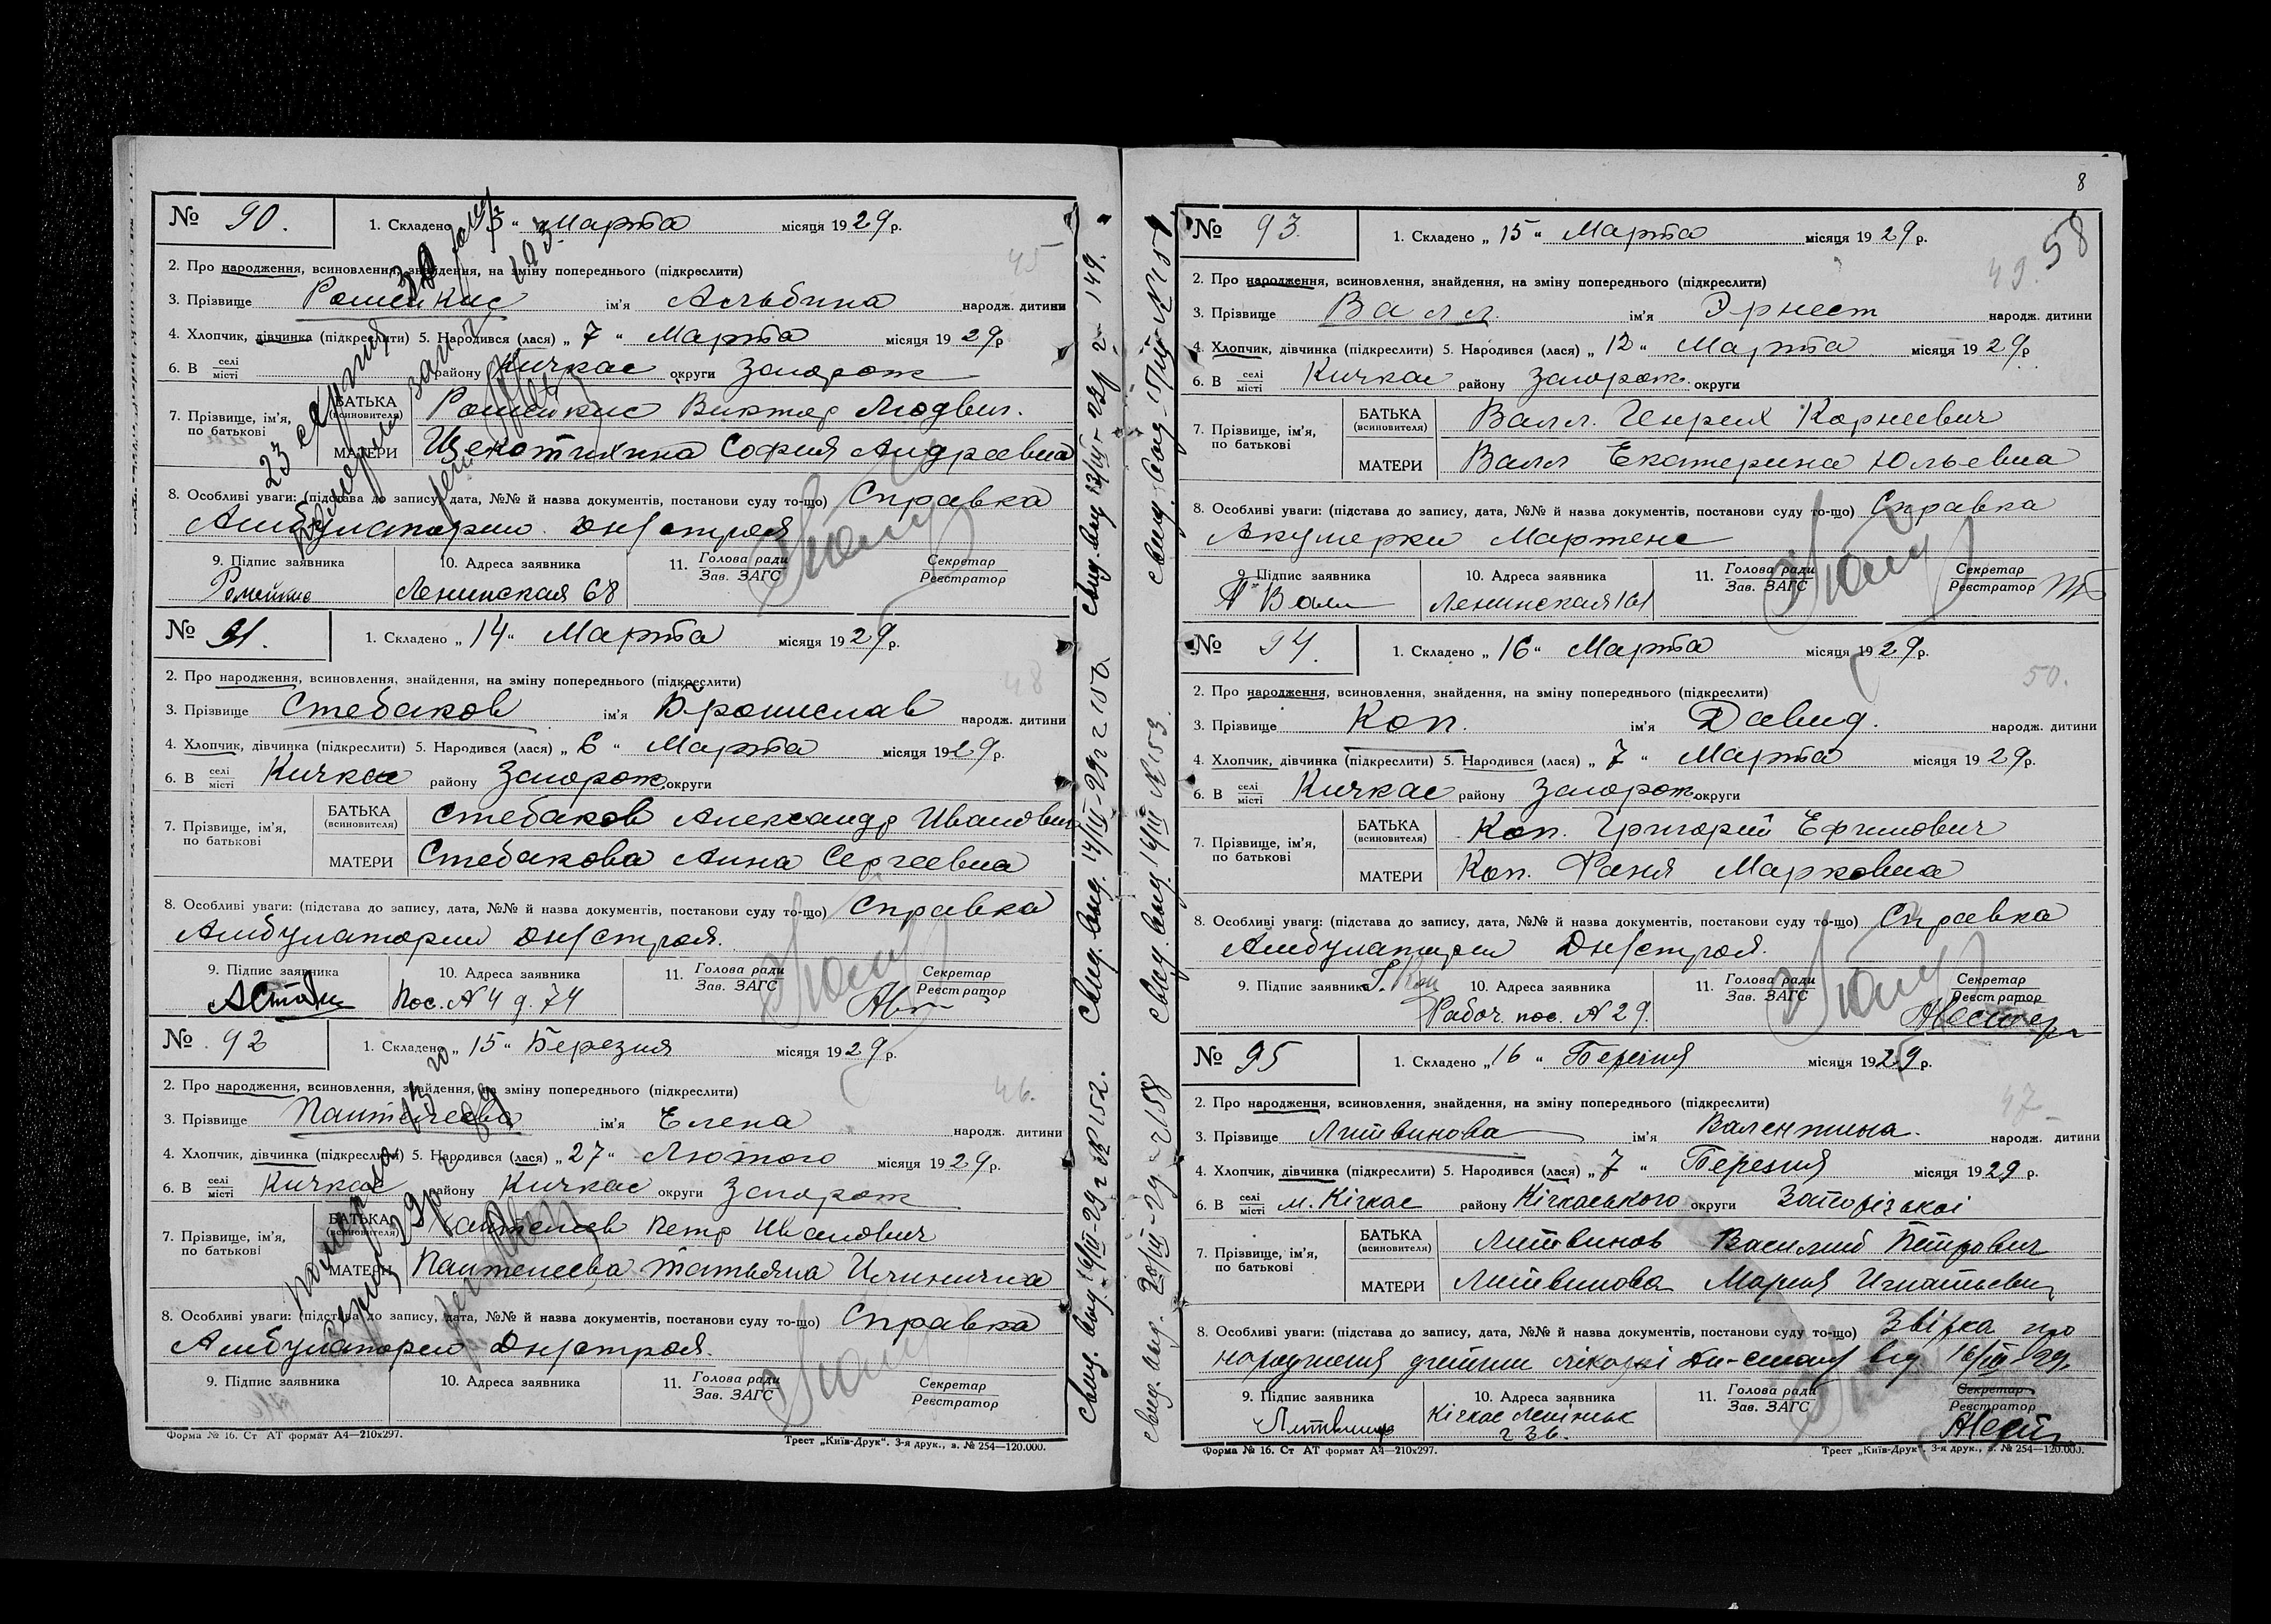 № 90.
1. Складено „ 13 “ Марта місяця 1929 р.
45
2. Про народження, всиновлення, знайдення, на зміну попереднього (підкреслити)
3. Прізвище Ромейкис ім'я Альбина народж. дитини
4. Хлопчик, дівчинка (підкреслити) 5. Народився (лася) „ 7 “ Марта місяця 1929 р
6. В селі місті району Кичкас округи Запорож
7. Прізвище, ім'я, по батькові
БАТЬКА (всиновителя) Ромейкис Виктор Людвиг.
МАТЕРИ Щекотихина София Андреевна
8. Особливі уваги: (підстава до запису, дата, №№ й назва документів, постанови суду то-що) Справка
Амбулатории Дн/строя
9. Підпис заявника Ромейкис
10. Адреса заявника Ленинская 68
11. Голова ради Зав. ЗАГС
Секретар Реєстратор
№ 91.
1. Складено „ 14 “ Марта місяця 1929 р.
48
2. Про народження, всиновлення, знайдення, на зміну попереднього (підкреслити)
3. Прізвище Стебаков ім'я Бронислав народж. дитини
4. Хлопчик, дівчинка (підкреслити) 5. Народився (лася) „ 6 “ Марта місяця 1929 р.
6. В селі місті Кичкас району Запорож. округи
7. Прізвище, ім'я, по батькові
БАТЬКА (всиновителя) Стебаков Александр Иванович
МАТЕРИ Стебакова Анна Сергеевна
8. Особливі уваги: (підстава до запису, дата, №№ й назва документів, постанови суду то-що) Справка
Амбулатории Дн/строя.
9. Підпис заявника
10. Адреса заявника Пос. № 4 д. 74
11. Голова ради Зав. ЗАГС
Секретар Реєстратор
№ 92
1. Складено „ 15 “ Березня місяця 1929 р.
46.
2. Про народження, всиновлення, знайдення, на зміну попереднього (підкреслити)
3. Прізвище Пантелеева ім'я Елена народж. дитини
4. Хлопчик, дівчинка (підкреслити) 5. Народився (лася) „ 27 “ Лютого місяця 1929 р.
6. В селі місті Кичкас району Кичкас округи Запорож
7. Прізвище, ім'я, по батькові
БАТЬКА (всиновителя) Пантелеев Петр Иванович
МАТЕРИ Пантелеева Татьяна Ильинична
8. Особливі уваги: (підстава до запису, дата, №№ й назва документів, постанови суду то-що) Справка
Амбулатории Дн/строя.
9. Підпис заявника
10. Адреса заявника
11. Голова ради Зав. ЗАГС
Секретар Реєстратор
Форма № 16. Ст АТ формат А4—210х297.
Трест „Київ-Друк“. 3-я друк., з. № 254—120.000.
8
58
№ 93.
1. Складено „ 15 “ Марта місяця 1929 р.
49.
2. Про народження, всиновлення, знайдення, на зміну попереднього (підкреслити)
3. Прізвище Валл. ім'я Эрнест народж. дитини
4. Хлопчик, дівчинка (підкреслити) 5. Народився (лася) „ 12 “ Марта місяця 1929 р
6. В селі місті Кичкас району Запорож. округи
7. Прізвище, ім'я, по батькові
БАТЬКА (всиновителя) Валл. Генрих Корнеевич
МАТЕРИ Валл Екатерина Юльевна
8. Особливі уваги: (підстава до запису, дата, №№ й назва документів, постанови суду то-що) Справка
Акушерки Мартенс
9. Підпис заявника
10. Адреса заявника Ленинская 161
11. Голова ради Зав. ЗАГС
Секретар Реєстратор
№ 94.
1. Складено „ 16 “ Марта місяця 1929 р.
50.
2. Про народження, всиновлення, знайдення, на зміну попереднього (підкреслити)
3. Прізвище Коп. ім'я Давид. народж. дитини
4. Хлопчик, дівчинка (підкреслити) 5. Народився (лася) „ 7 “ Марта місяця 1929 р.
6. В селі місті Кичкас району Запорож округи
7. Прізвище, ім'я, по батькові
БАТЬКА (всиновителя) Коп. Григорий Ефимович
МАТЕРИ Коп. Фаня Марковна
8. Особливі уваги: (підстава до запису, дата, №№ й назва документів, постанови суду то-що) Справка
Амбулатории Дн/строя.
9. Підпис заявника
10. Адреса заявника Рабоч. пос. № 29.
11. Голова ради Зав. ЗАГС
Секретар Реєстратор
№ 95
1. Складено „ 16 “ Березня місяця 1929 р.
47
2. Про народження, всиновлення, знайдення, на зміну попереднього (підкреслити)
3. Прізвище Литвинова ім'я Валентина. народж. дитини
4. Хлопчик, дівчинка (підкреслити) 5. Народився (лася) „ 7 “ Березня місяця 1929 р.
6. В селі місті м. Кічкас району Кічкаського округи Запорізької
7. Прізвище, ім'я, по батькові
БАТЬКА (всиновителя) Литвинов Василий Петрович
МАТЕРИ Литвинова Мария Игнатьевн
8. Особливі уваги: (підстава до запису, дата, №№ й назва документів, постанови суду то-що) про
народження дитини від 16/III 29р.
9. Підпис заявника
10. Адреса заявника Кічкас Ленінськ 236.
11. Голова ради Зав. ЗАГС
Секретар Реєстратор
Форма № 16. Ст АТ формат А4—210х297.
Трест „Київ-Друк“. 3-я друк., з. № 254—120.000.